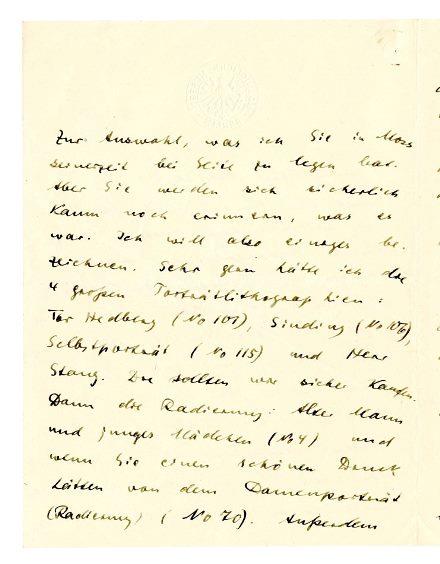 Zur Auswahl, was ich Sie in Moss
seinerzeit bei Seite zu legen bat.
Aber Sie werden sich sicherlich
kaum noch erinnern, was es
war. Ich will also einiges be-
zeichnen. Sehr gern hätte ich die
4 großen Porträtlithographien:
Tor Hedberg (No 101), Sinding (No 106),
Selbstporträt (No 115) und Herr
Stang. Die sollten wir sicher kaufen.
Dann die Radierung: Alter Mann
und junges Mädchen (No 4) und
wenn Sie einen schönen Druck
hätten von dem Damenporträt
(Radierung) (No 70). Außerdem